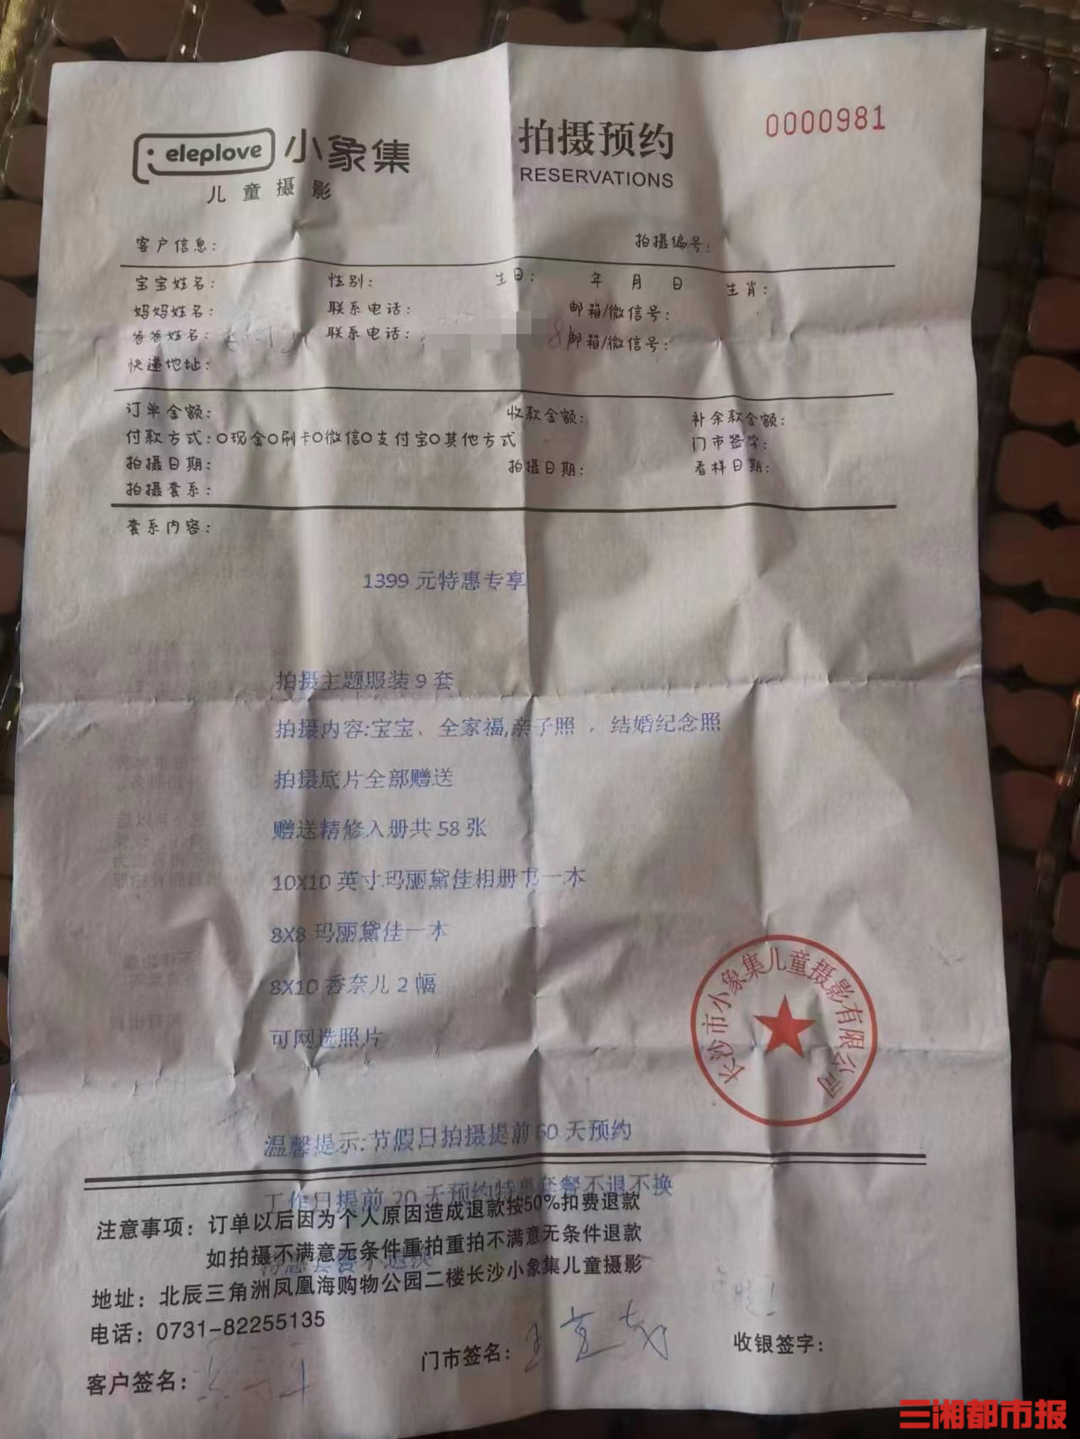 eleplove 小象集
儿童摄影
拍摄预约
RESERVATIONS
0000981
客户信息: 拍摄编号:
宝宝姓名: 性别: 生日: 年 月 日 生肖:
妈妈姓名: 联系电话: 邮箱/微信号:
爸爸姓名: 联系电话: 8 邮箱/微信号:
快递地址:
订单金额: 收款金额: 补余款金额:
付款方式:O现金O刷卡O微信O支付宝O其他方式 门市签字:
拍摄日期: 拍摄日期: 看样日期:
拍摄套系:
套系内容:
1399 元特惠专享
拍摄主题服装 9 套
拍摄内容:宝宝、全家福,亲子照 ，结婚纪念照
拍摄底片全部赠送
赠送精修入册共 58 张
10X10 英寸玛丽黛佳相册书一本
8X8 玛丽黛佳一本
8X10 香奈儿 2 幅
可网选照片
长沙市小象集儿童摄影有限公司
温馨提示:节假日拍摄提前 60 天预约
工作日提前 20 天预约特惠套餐不退不换
注意事项: 订单以后因为个人原因造成退款按50%扣费退款
如拍摄不满意无条件重拍重拍不满意无条件退款
特惠套餐不退换
地址: 北辰三角洲凤凰海购物公园二楼长沙小象集儿童摄影
电话: 0731-82255135
客户签名: 门市签名: 收银签字:
三湘都市报